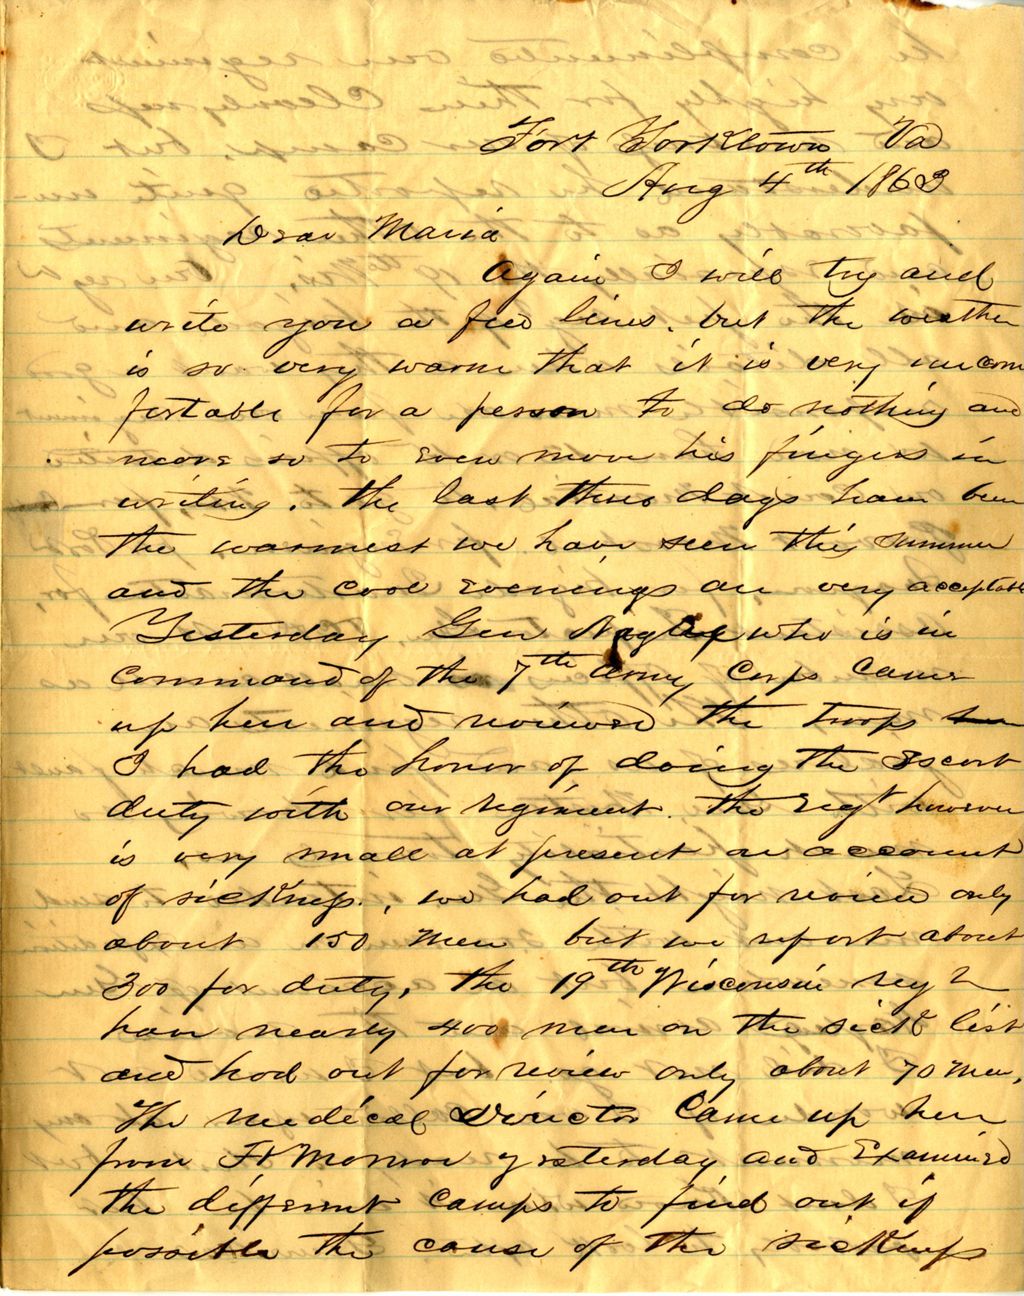 Fort Yorktown Va
Aug 4th 1863
Dear Maria
Again I will try and
write you a few lines. but the weather
is so very warm that it is very uncom
fortable for a person to do nothing and
more so to even move his fingers in
writing. the last three days have been
the warmest we have seen this summer
and the cool evenings are very acceptable
Yesterday Gen Naglee who is in
command of the 7th Army Corps came
up here and reviewed the troops
I had the honor of doing the Escort
duty with our regiment. the Regt however
is very small at present on account
of sickness, we had out for review only
about 150 men but we report about
300 for duty, the 19th Wisconsin regt
have nearly 400 men on the sick list
and had out for review only about 70 men,
The medical Director Came up here
from Ft Monroe yesterday and Examined
the different camps to find out if
possible the cause of the sickness